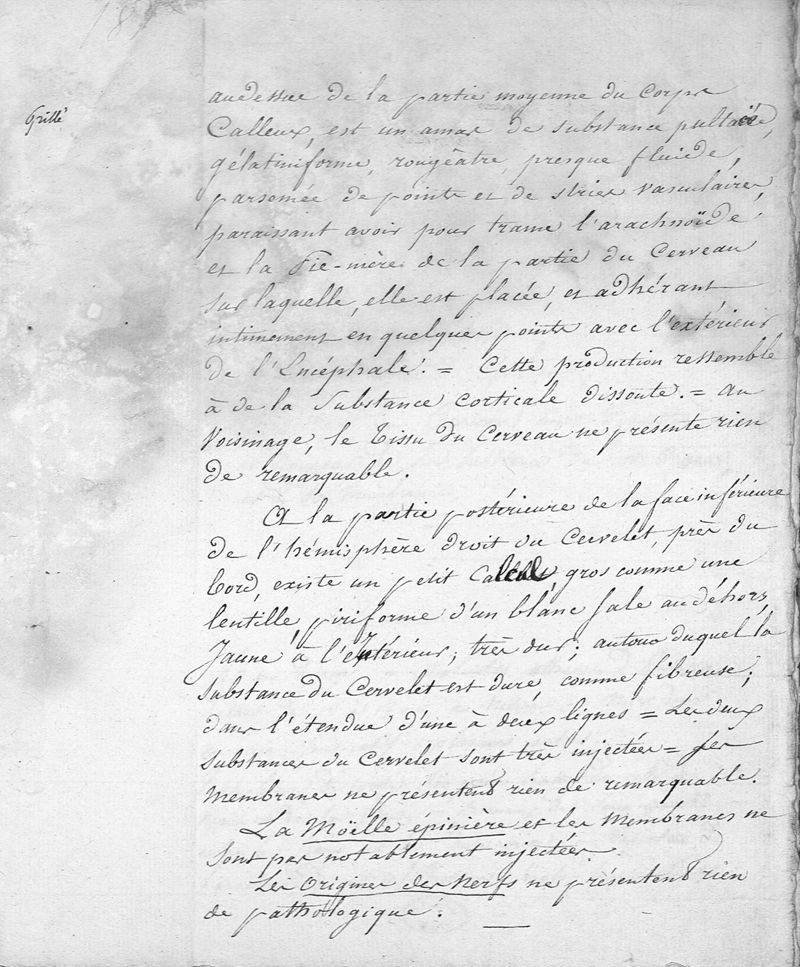 Grille
audessus de la partie moyenne du Corps
Calleux, est un amas de substance pultacée,
gélatiniforme, rougeâtre, presque fluide,
parsemée de points et de stries vasculaires,
paraissant avoir pour trame l'arachnoïde
et la Pie-mère de la partie du Cerveau
sur laquelle, elle est placée, et adhérant
intimement en quelques points avec l'extérieur
de l'Encéphale. = Cette production ressemble
à de la Substance corticale dissoute. = au
Voisinage, le Tissu du Cerveau ne présente rien
de remarquable.
A la partie postérieure de la face inférieure
de l'hémisphère droit du Cervelet, près du
bord, existe un petit Calcul, gros comme une
lentille, piriforme d'un blanc sale au déhors,
Jaune à l'Intérieur; très dur; autour duquel la
substance du Cervelet est dure, comme fibreuse;
dans l'étendue d'une à deux lignes = Les deux
substances du Cervelet sont très injectées = Les
Membranes ne présentent rien de remarquable.
La Moëlle épinière et les Membranes ne
sont pas notablement injectées.
Les Origines des Nerfs ne présentent rien
de pathologique.